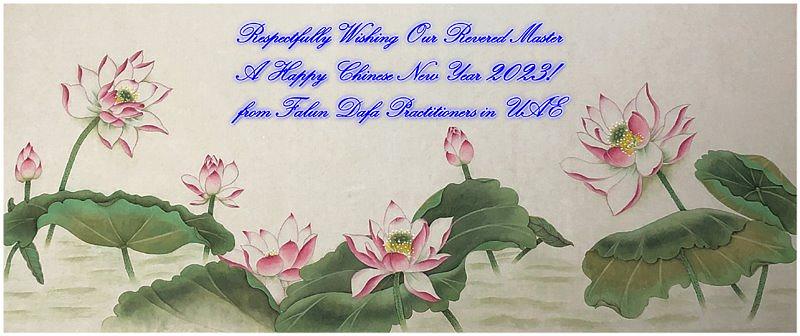 Respectfully Wishing Our Revered Master
A Happy Chinese New Year 2023!
from Falun Dafa Practitioners in UAE